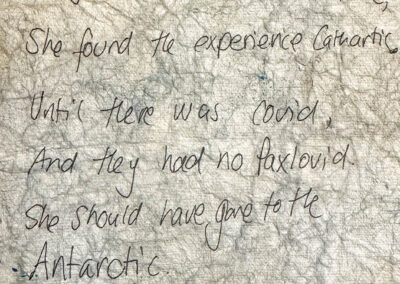 She found the experience Cathartic,
Until there was covid,
And they had no Paxlovid.
She should have gone to the
Antarctic.